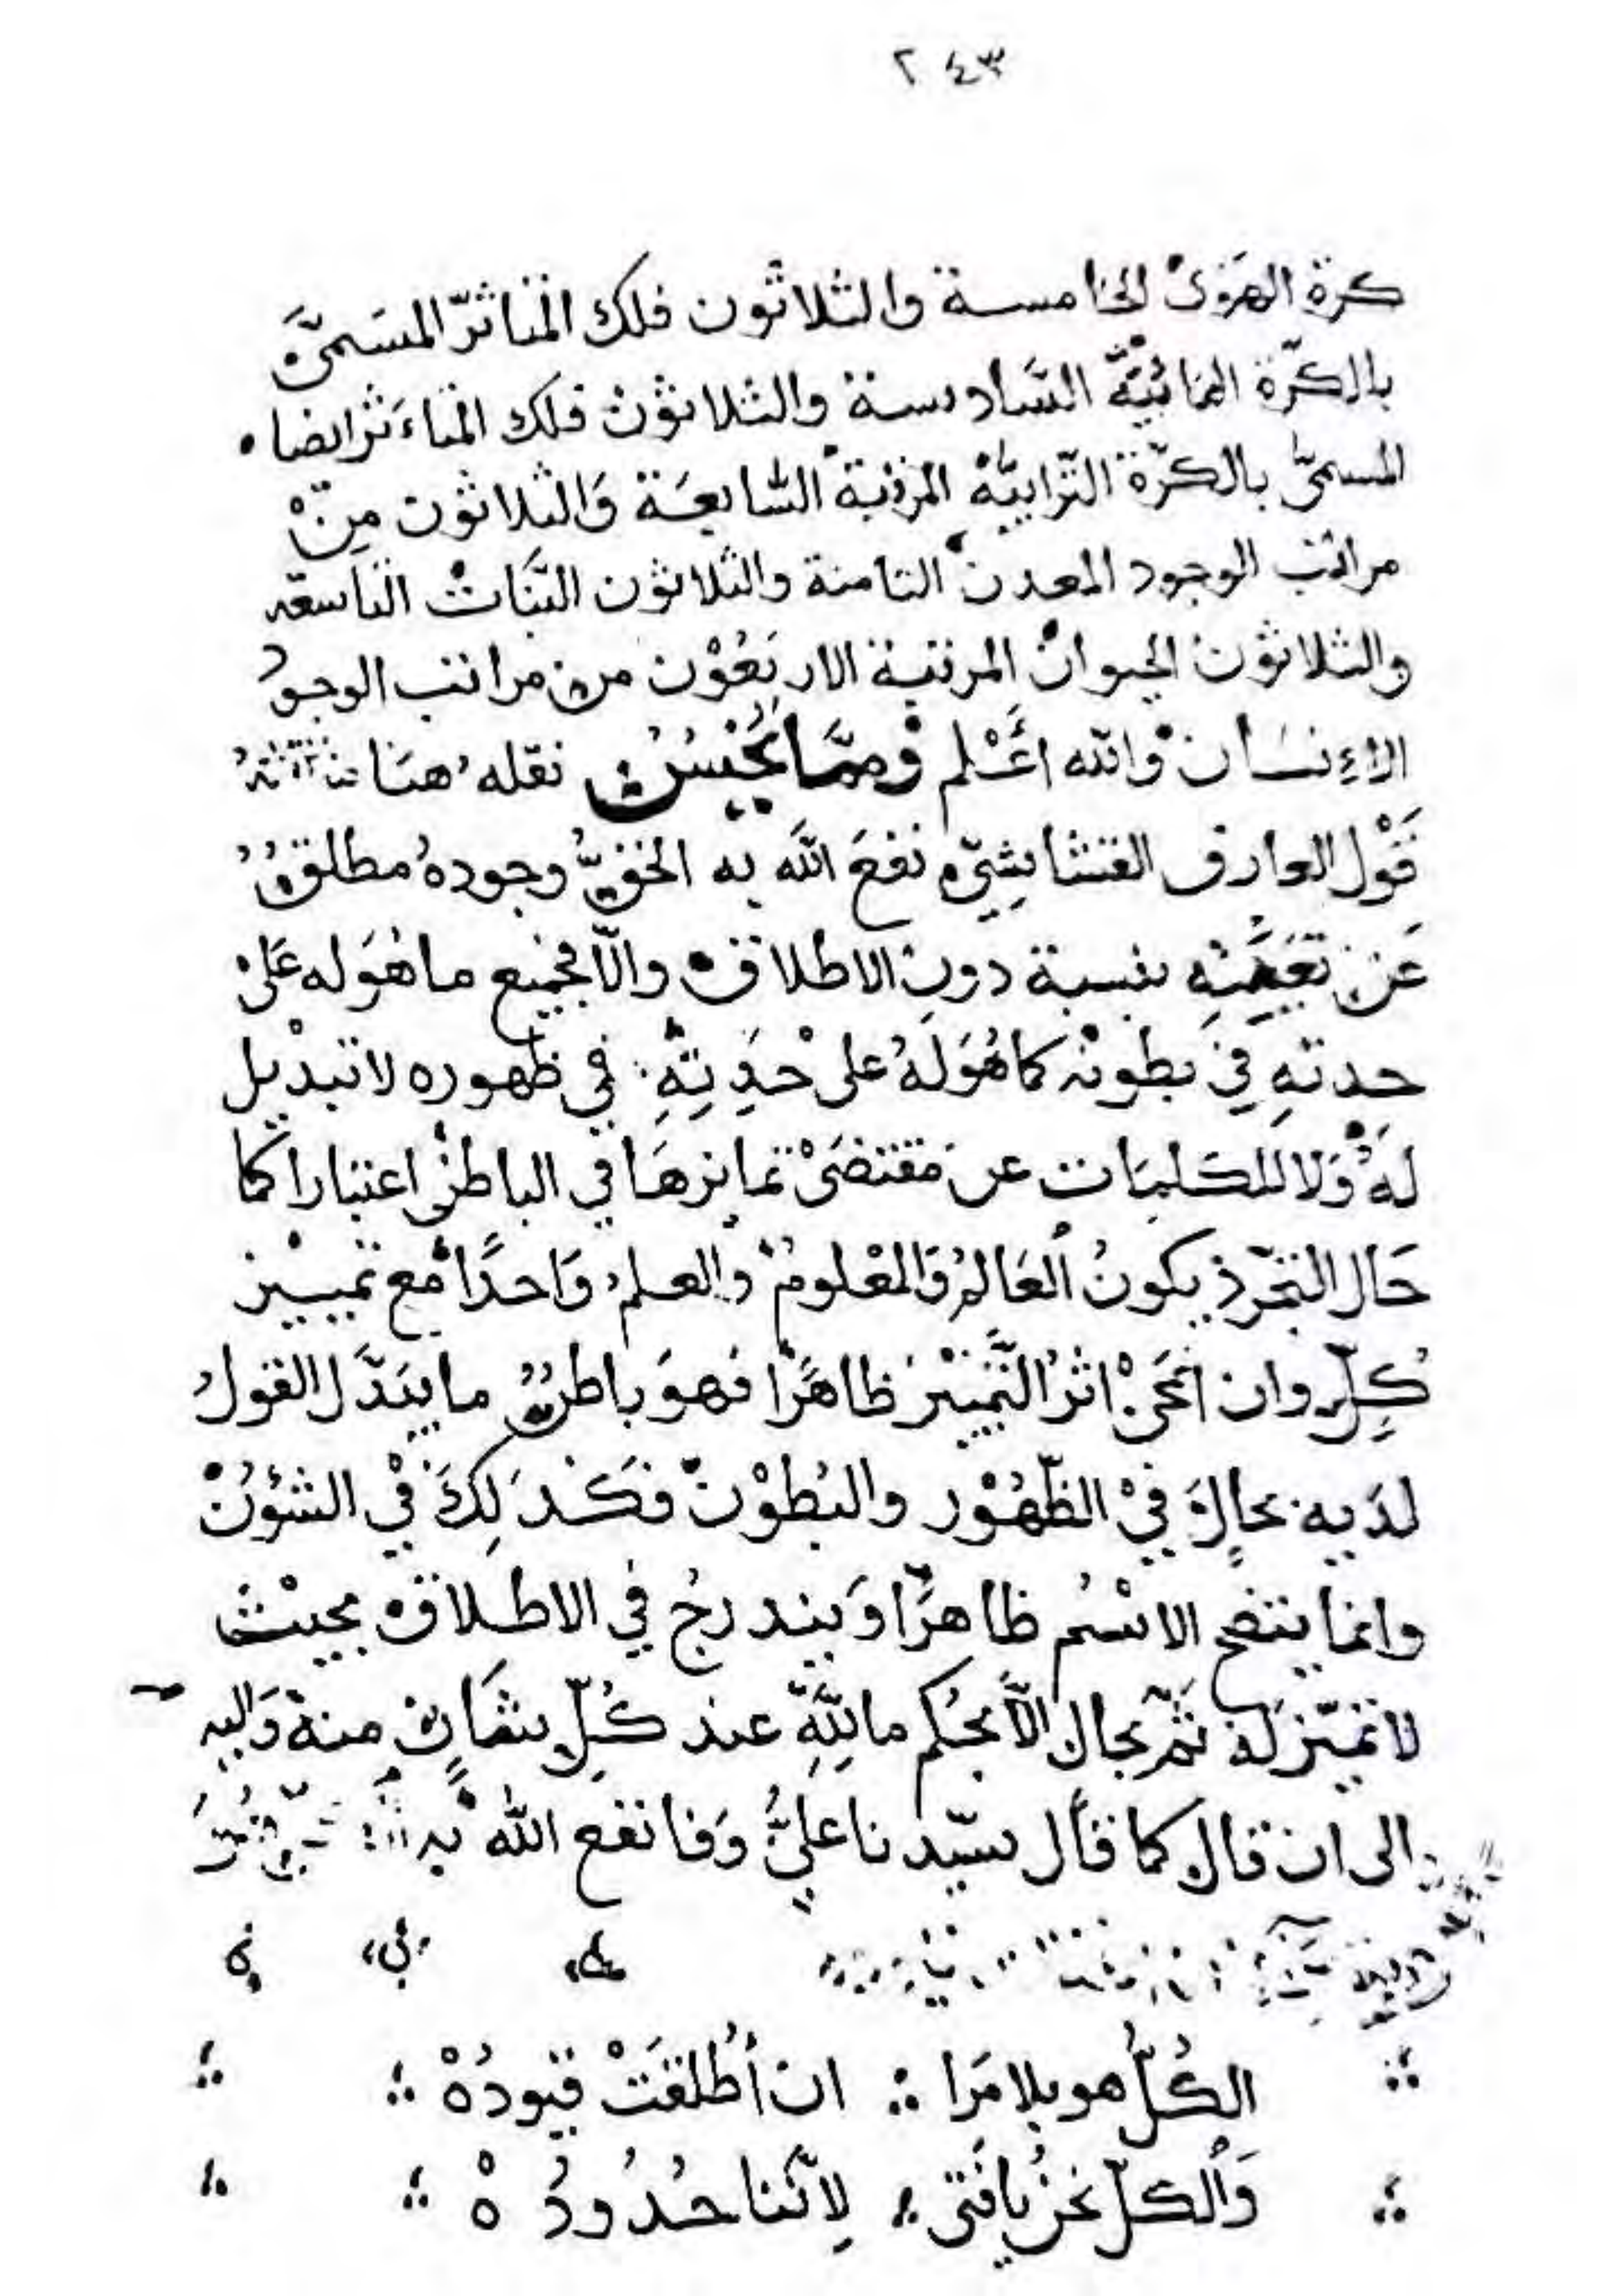 ٢٤٣
كرة الهوىٰ الخامسة والثلاثون فلك المتاثّر المسَمىَّ
بالكرّة المائيَّة السَّادسة والثلاثوْن فلك المتاءَثر ايضا
المسمىّ بالكرّة التّرابيّة المرتبة السَّابعَة وَالثلاثوْن مِنْ
مراتب الوجود المعدن الثامنة والثلاثون النَّبَاتْ التاسعة
والثلاثوْن الحيوانْ المرتبة الاربَعُوْن من مراتب الوجود
الاءِنسَان وْالله اعَْلم وْممَّا يَحْسُنُ نقله هنَا
قَوْل العارف القشاشِيّ نفعَ اللَّه به الخفيُّ وجودهُ مطلقٌ
عَن تعَيُّنِهِ بنسبة دون الاطلاق والّا فجميع ما هُوَ له عَلى
حدتهِ فِي بطونْه كما هُوَ لَهُ على حِدَتِهِ في ظهوره لا تبدْيل
لَهُ وَلا للكلمَات عن مَقتضَىْ تمايزهَا في الباطنْ اعتبارا كما
حَال التجرّد يكونُ العَالمُ وَالمعْلومُ وْالعلمُ وَاحدًا مع تمييْز
كُلٍّ وان انمحَىْ اثرُ التَّمييْز ظاهرًا فهوَ باطنٌ ما يبَدَّل القولُ
لدَيه بحالٍ فيْ الظّهُوْر والبُطوْن فكَذلِكَ فيْ الشئوُنْ
وانما يتضح الاسْمُ ظاهرًا وَيندرجُ في الاطلاق بحيْث
لا تميّز لَهُ ثمّ بحال الَّا بحُكم ما لِلَّهِ عند كُلِّ شَانٍ منهْ وَاليه
الى ان قال كما قال سيّدنا عليُّ وَفا نفع اللَّه به
الكُلُّ هو بلا مَرا ؞ ان أُطلقَتْ قيودُهْ ؞
وَالكلّ نحنُ يا فَتى ؞ لِانَّنا حُدُودُهْ ؞